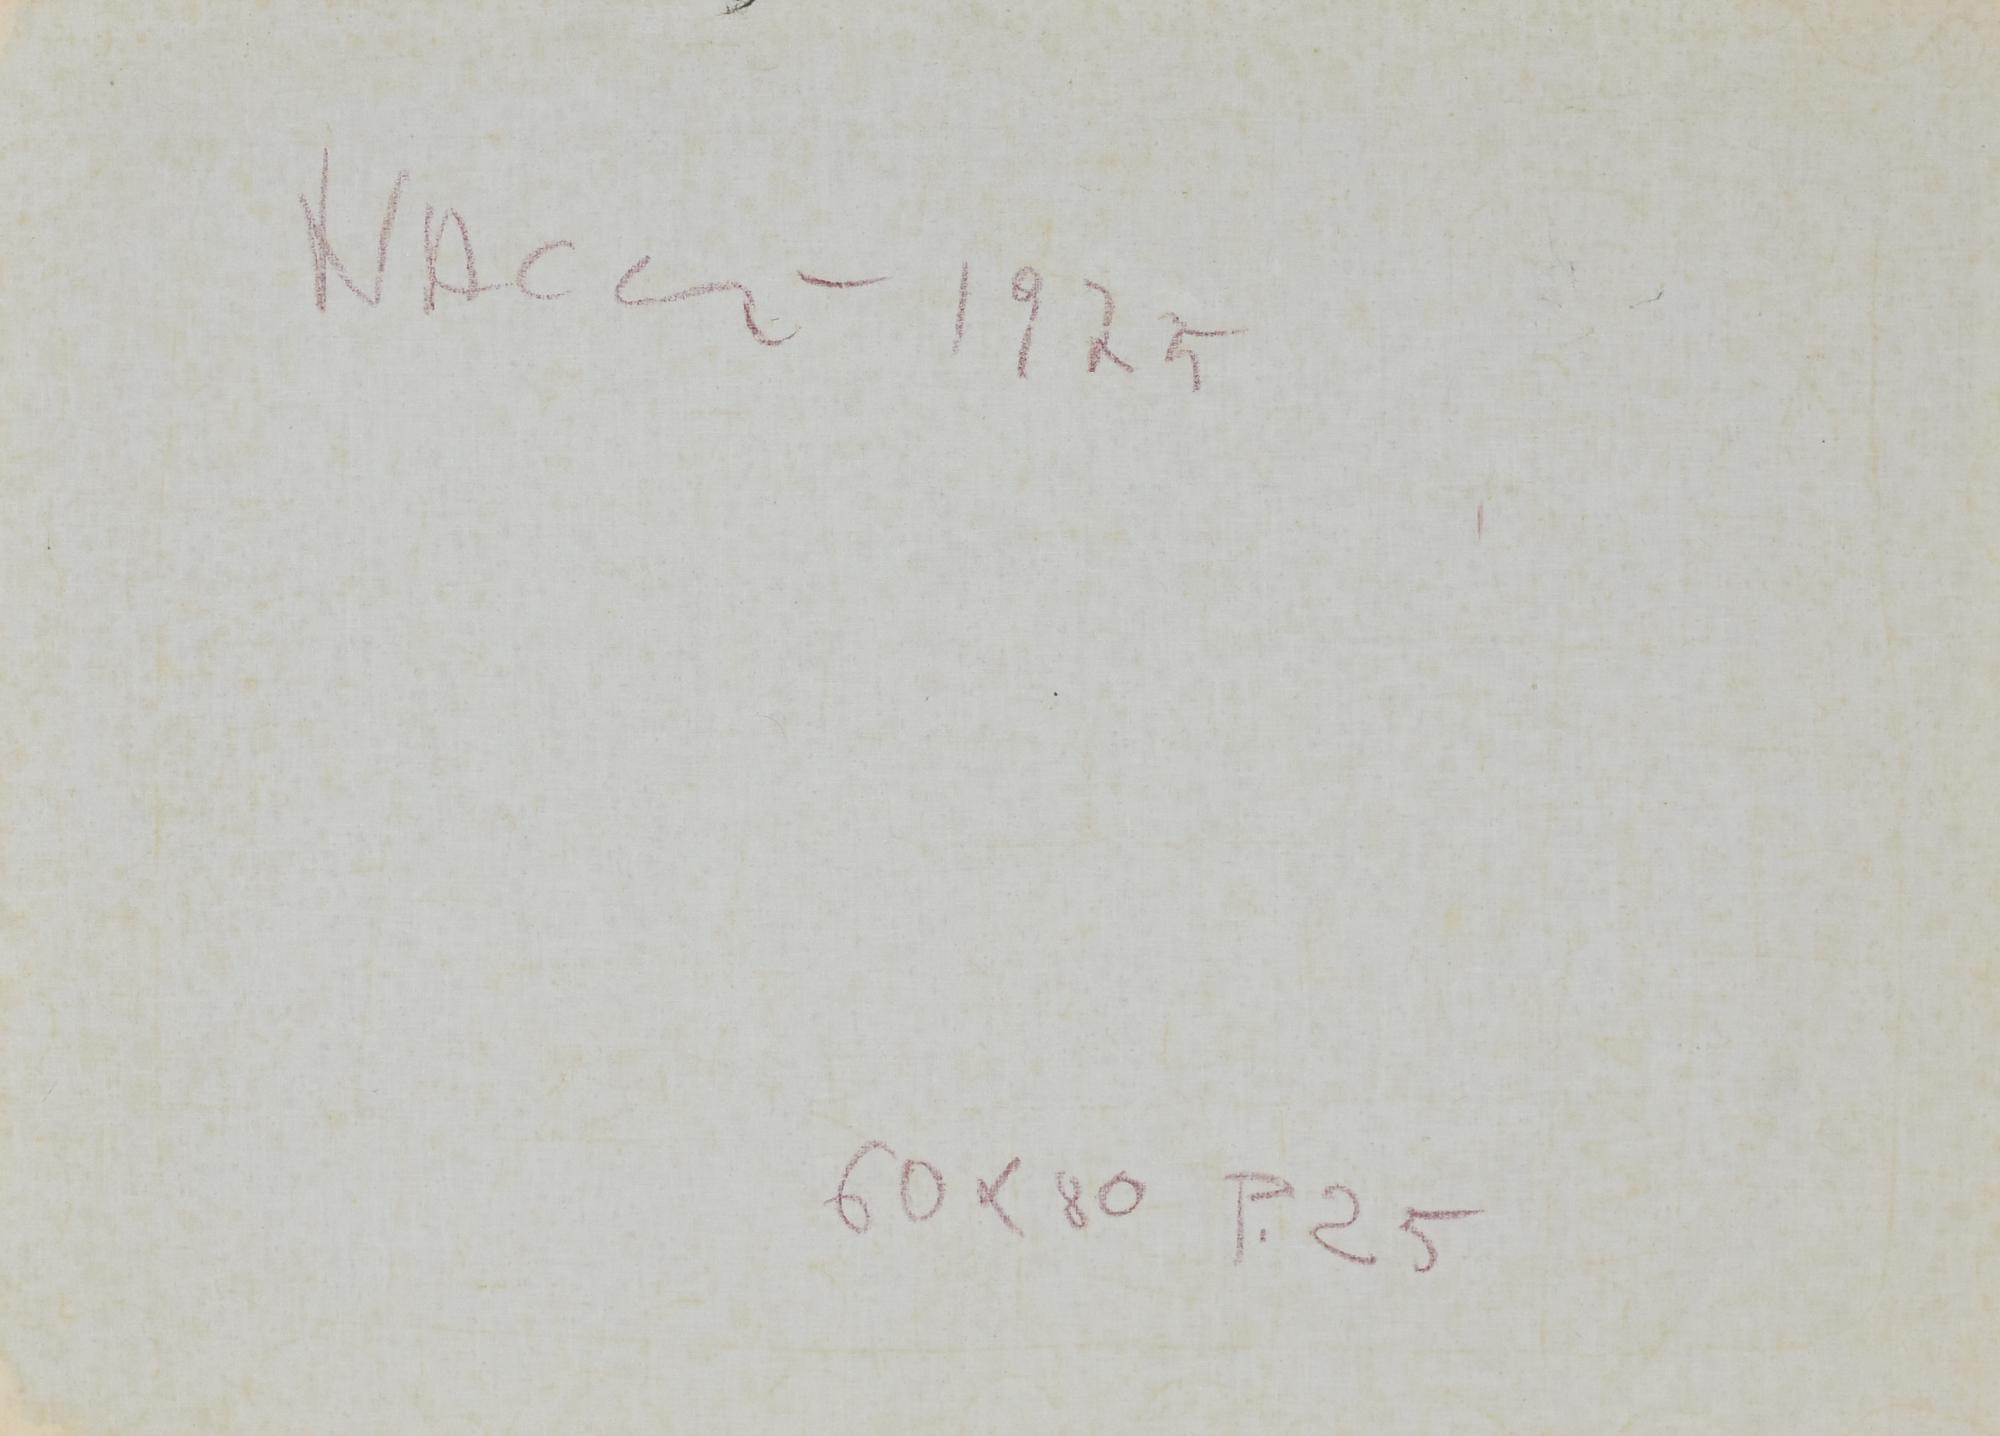 1925
60 x 80 P. 25